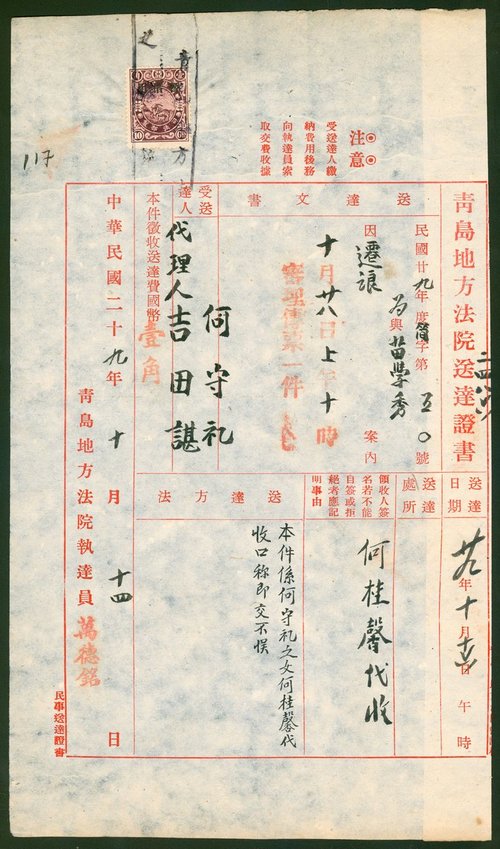 青島地方法院送達證書
民國廿九年度簡字第五〇號
為與苗學秀
因遷讓
案內
送達文書
十月廿八日上午十時
審理傳票一件
受送達人
何守礼
代理人吉田諶
本件徵收送達費國幣壹角
注意
受送達人繳
納費用後務
向執達員索
取交費收據
117
送達日期
廿九年十月十六日午時
送達處所
領收人簽
名若不能
自簽或拒
絕者應記
明事由
何桂馨代收
送達方法
本件係何守礼之父何桂馨代
收口称即交不悮
中華民國二十九年十月十四日
青島地方法院執達員萬德銘
民事送達證書